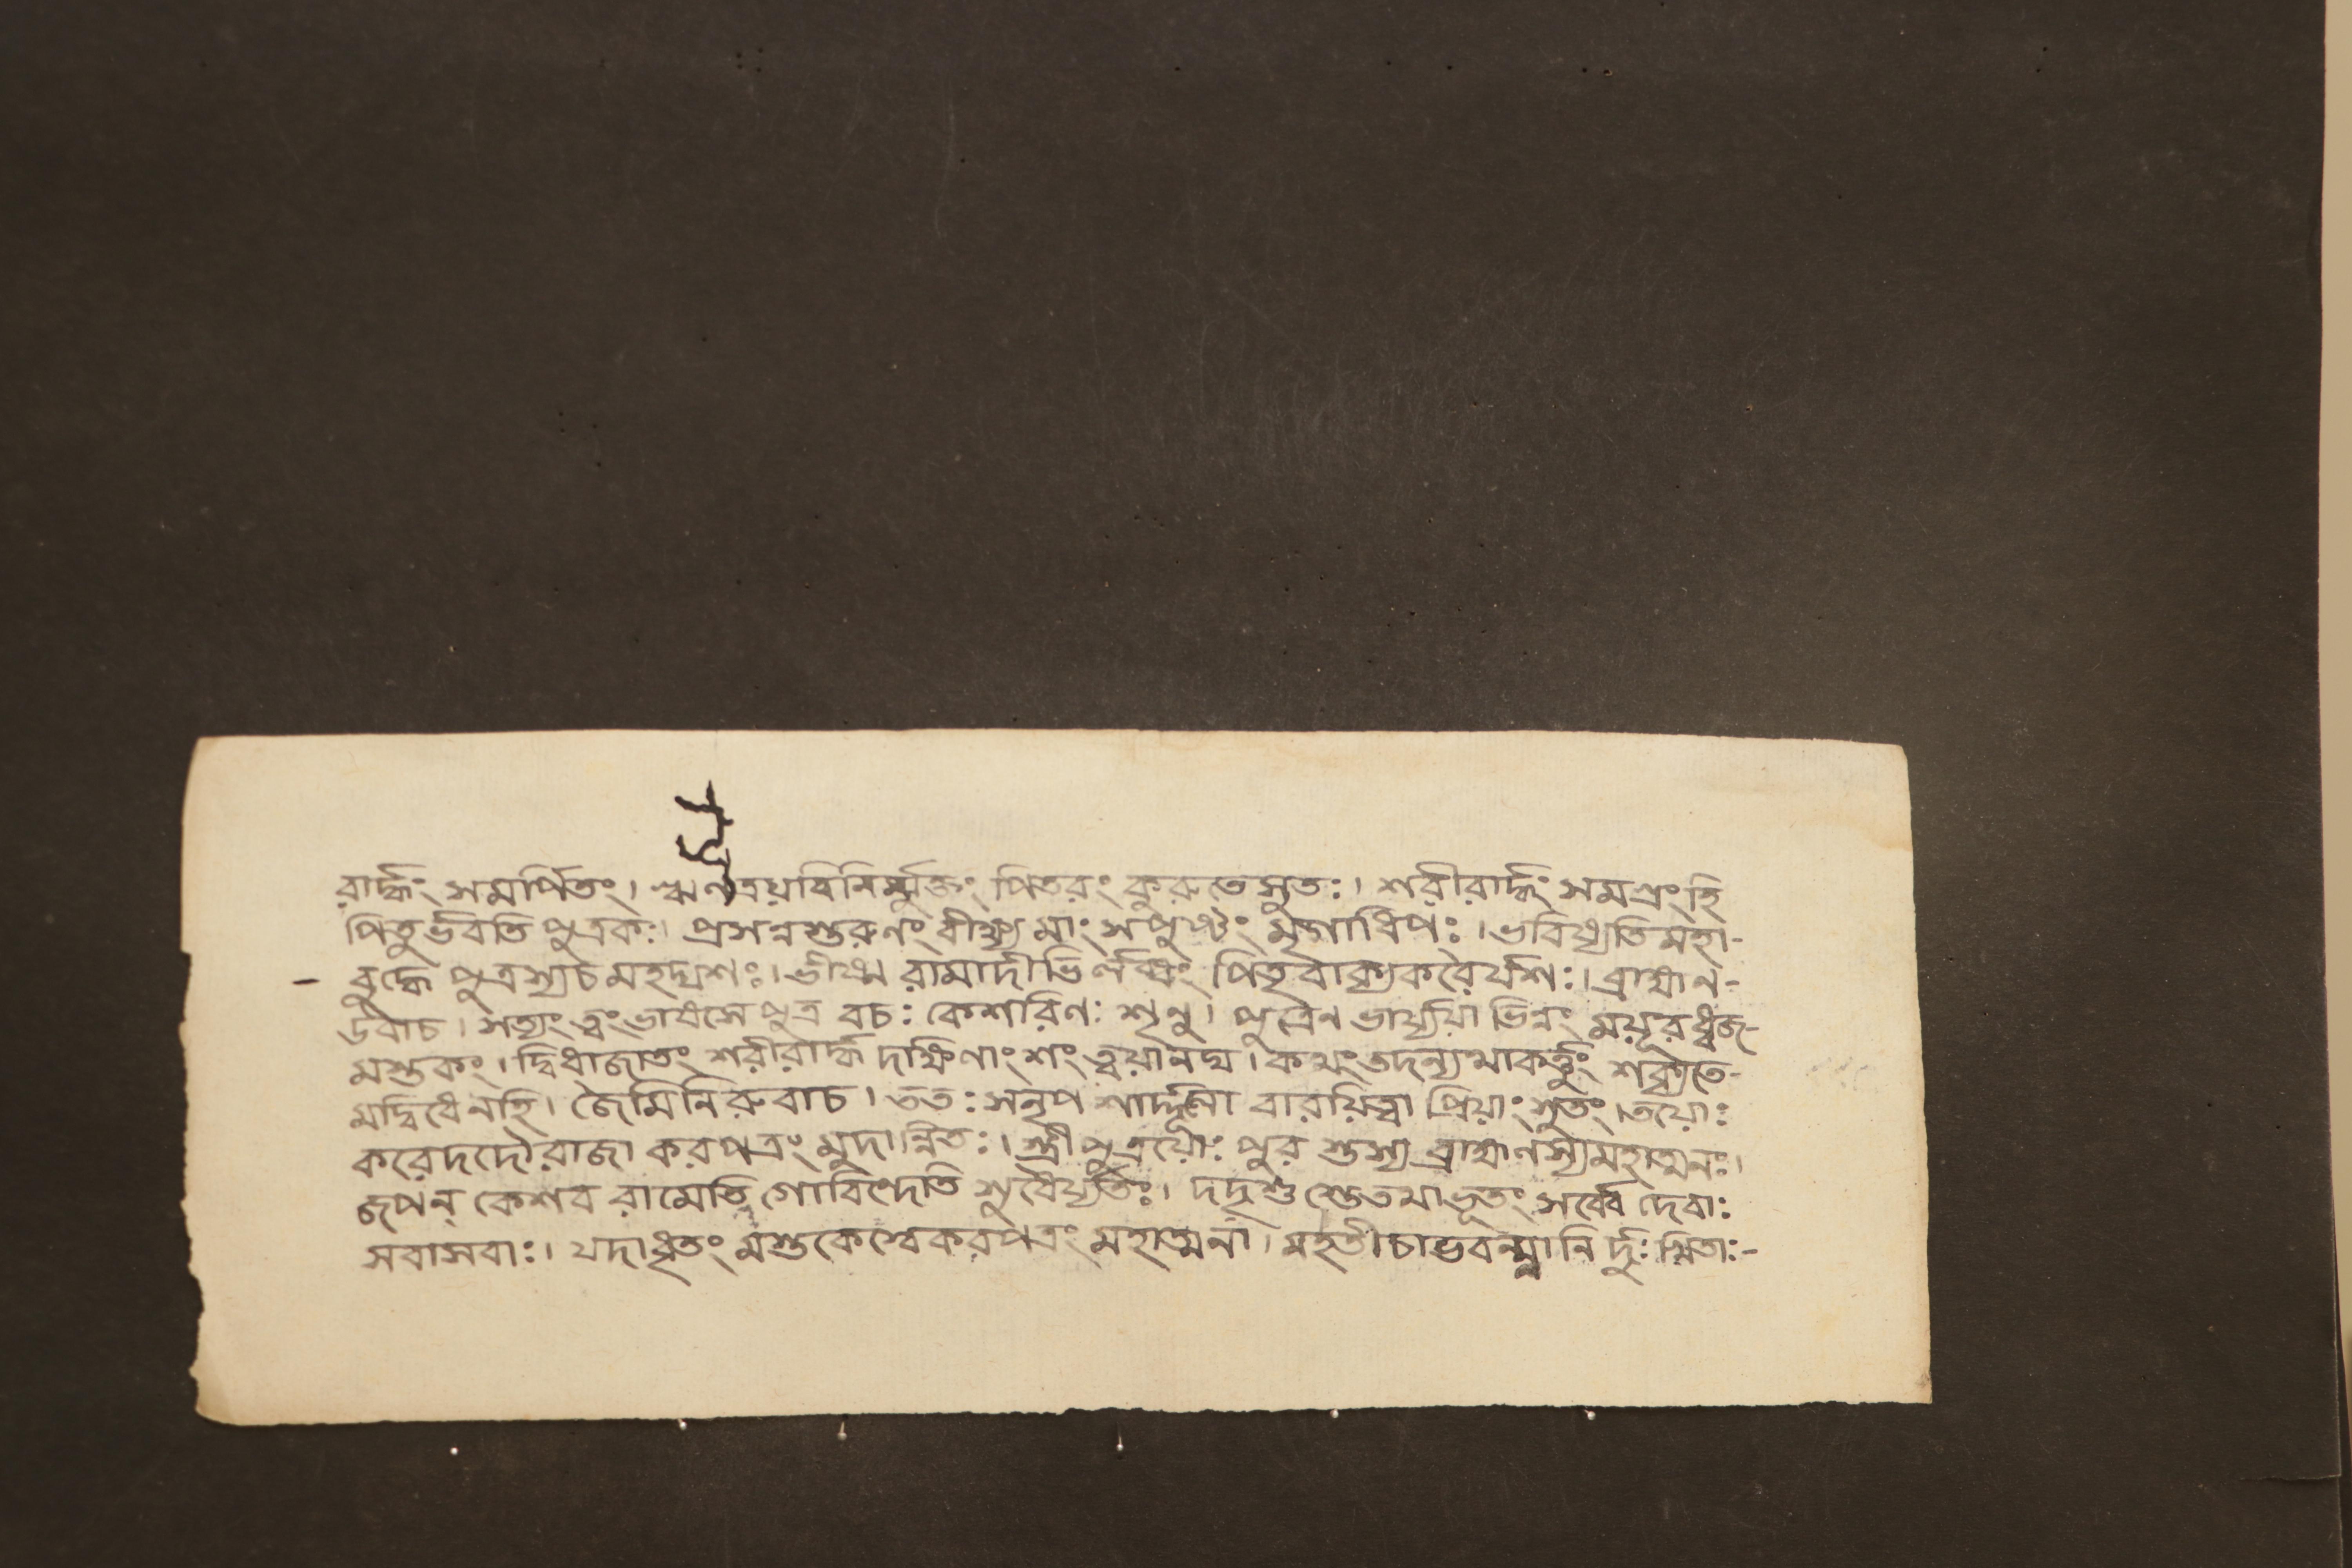 রার্দ্ধং সমর্পিতং। ঋণত্রয়বিনির্ম্মুক্তং পিতরং কুরুতেসুতঃ। শরীরার্দ্ধং সমগ্রংহি
পিতুর্ভবতি পুত্রকঃ। প্রসন্নস্তরুণং বীক্ষ্য মাং সপুষ্টং মৃগাধিপঃ। ভবিষ্যতিমহা-
বুদ্ধে পুত্রস্যচমহদ্যশঃ। ভীষ্ম রামাদীভির্লব্ধং পিতৃবাক্যকরৈর্যশঃ। ব্রাহ্মণ-
উবাচ। সত্যং ত্বংভাষসে পুত্র বচঃ কেশরিণঃ শৃনু। পুত্রেন ভার্য্যয়া ভিন্নং ময়ূরধ্বজ-
মস্তকং। দ্বিধাজাতং শরীরার্দ্ধ দক্ষিণাংশং ত্বয়ানঘ। কথংতদন্যথাকর্ত্তুং শক্যতে-
মদ্বিধেনহি। জৈমিনিরুবাচ। ততঃ সনৃপ শার্দ্দূলো বারয়িত্বা প্রিয়াংসুতং। তয়োঃ
করেদদৌরাজা করপত্রং মুদান্বিতঃ। স্ত্রীপুত্রয়োঃ পুর স্তস্য ব্রাহ্মণস্যমহাত্মনঃ।
জপন্ কেশব রামেতি গোবিন্দেতি সুধৈর্য্যতঃ। দদৃশু স্তেতথাভূতং সর্ব্বে দেবাঃ
সবাসবাঃ। যদাধৃতং মস্তকেস্বেকরপত্রং মহাত্মনা। মহতীচাভবন্ম্লানি র্দুঃখিতাঃ-